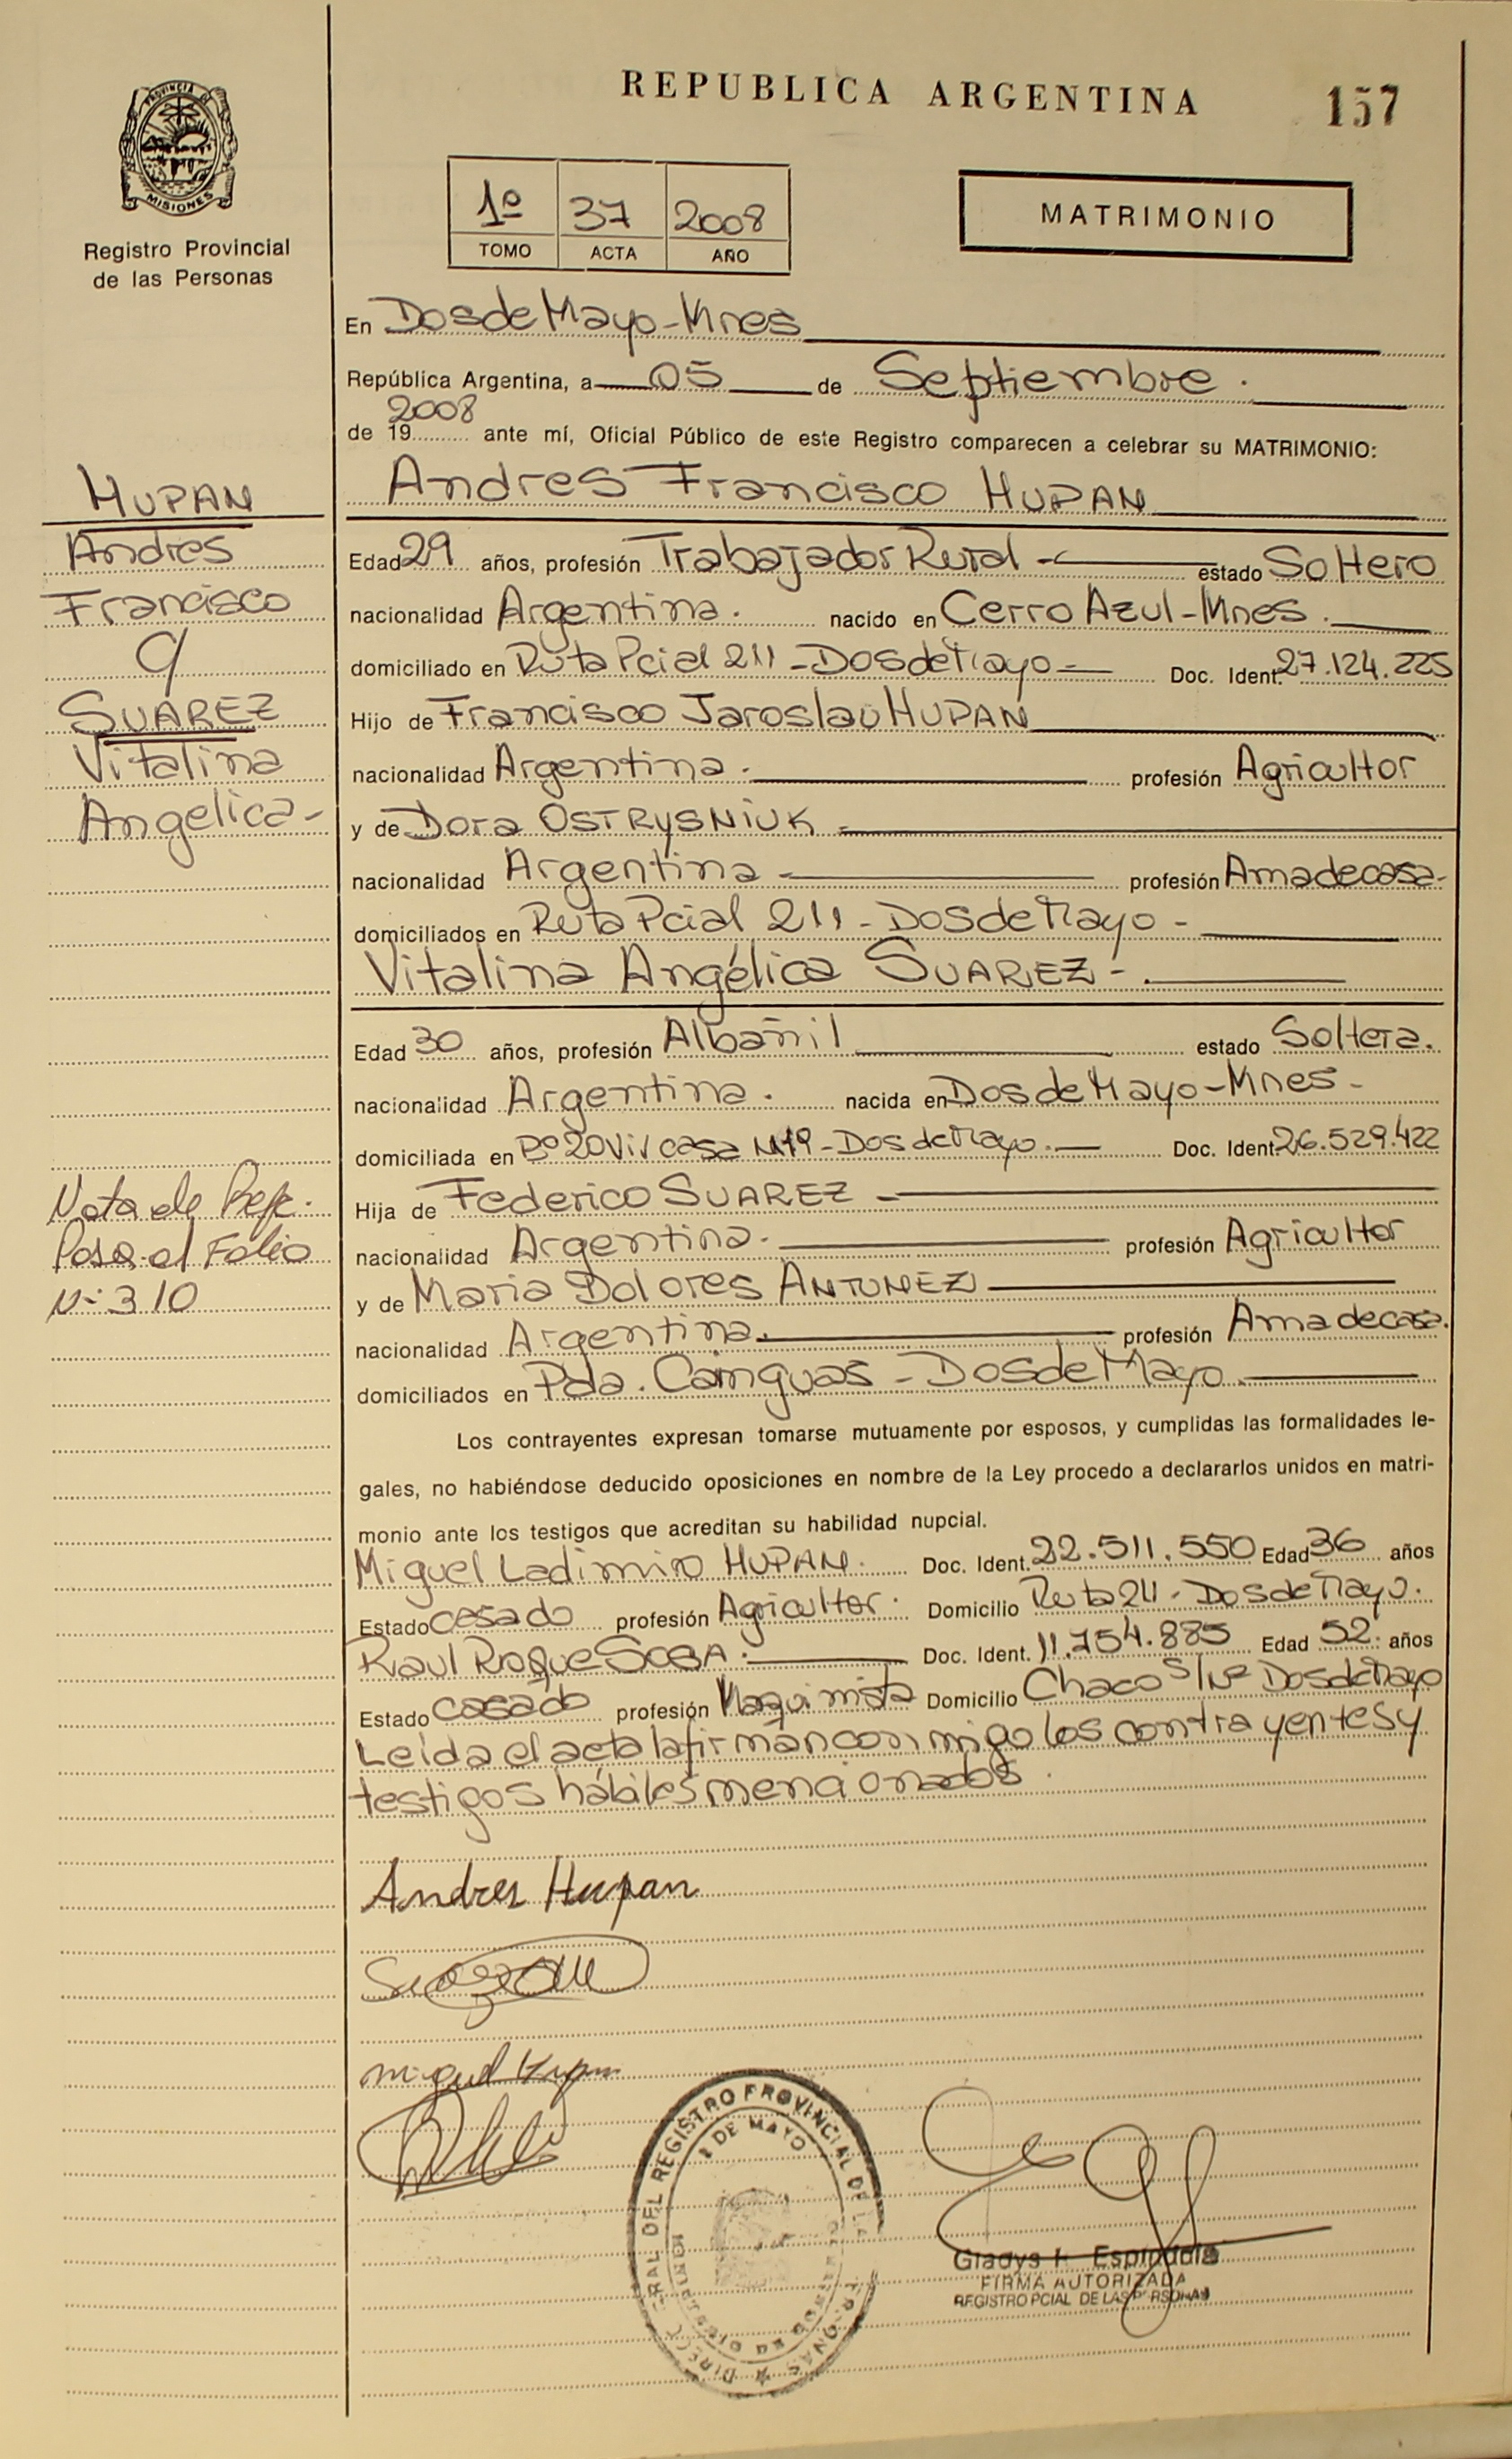 REPUBLICA ARGENTINA
157
PROVINCIA D
MISIONES
Registro Provincial
de las Personas
1º 37 2008
TOMO ACTA AÑO
MATRIMONIO
En Dos de Mayo - Mnes
República Argentina, a 05 de Septiembre.
2008
de 19 ante mí, Oficial Público de este Registro comparecen a celebrar su MATRIMONIO:
Andres Francisco HUPAN
Edad 29 años, profesión Trabajador Rural - estado Soltero
nacionalidad Argentina. nacido en Cerro Azul - Mnes.
domiciliado en Ruta Pcial 211 - Dos de Mayo - Doc. Ident. 27.124.225
Hijo de Francisco Jaroslau HUPAN
nacionalidad Argentina. profesión Agricultor
y de Dora OSTRYSNIUK
nacionalidad Argentina profesión Ama de casa-
domiciliados en Ruta Pcial 211 - Dos de Mayo -
Vitalina Angélica SUAREZ -
Edad 30 años, profesión Albañil estado Soltera.
nacionalidad Argentina. nacida en Dos de Mayo - Mnes -
domiciliada en Bº 20 Viv casa Nº19 - Dos de Mayo. Doc. Ident. 26.529.422
Hija de Federico SUAREZ
nacionalidad Argentina. profesión Agricultor
y de Maria Dolores ANTUNEZ
nacionalidad Argentina. profesión Ama de casa.
domiciliados en Pda. Cainguas - Dos de Mayo.
Los contrayentes expresan tomarse mutuamente por esposos, y cumplidas las formalidades le-
gales, no habiéndose deducido oposiciones en nombre de la Ley procedo a declararlos unidos en matri-
monio ante los testigos que acreditan su habilidad nupcial.
Miguel Ladimiro HUPAN. Doc. Ident. 22.511.550 Edad 36 años
Estado casado profesión Agricultor. Domicilio Ruta 211 - Dos de Mayo.
Raul Roque SOSA. Doc. Ident. 11.754.885 Edad 52 años
Estado casado profesión Maquinista Domicilio Chaco S/Nº Dos de Mayo
Leida el acta la firman conmigo los contrayentes y
testigos hábiles mencionados.
HUPAN
Andres
Francisco
c/
SUAREZ
Vitalina
Angelica-
Nota de Refe.
Pasa al Folio
Nº 310
Andres Hupan
Miguel Hupan
DEL REGISTRO PROVINCIAL DE LA
2 DE MAYO
Gladys Espindola
FIRMA AUTORIZADA
REGISTRO PCIAL DE LAS PERSONAS